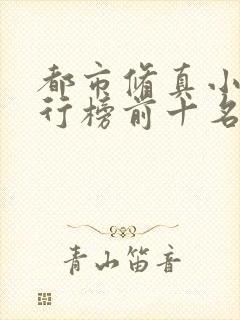 都市修真小
行榜前十名
青山笛音